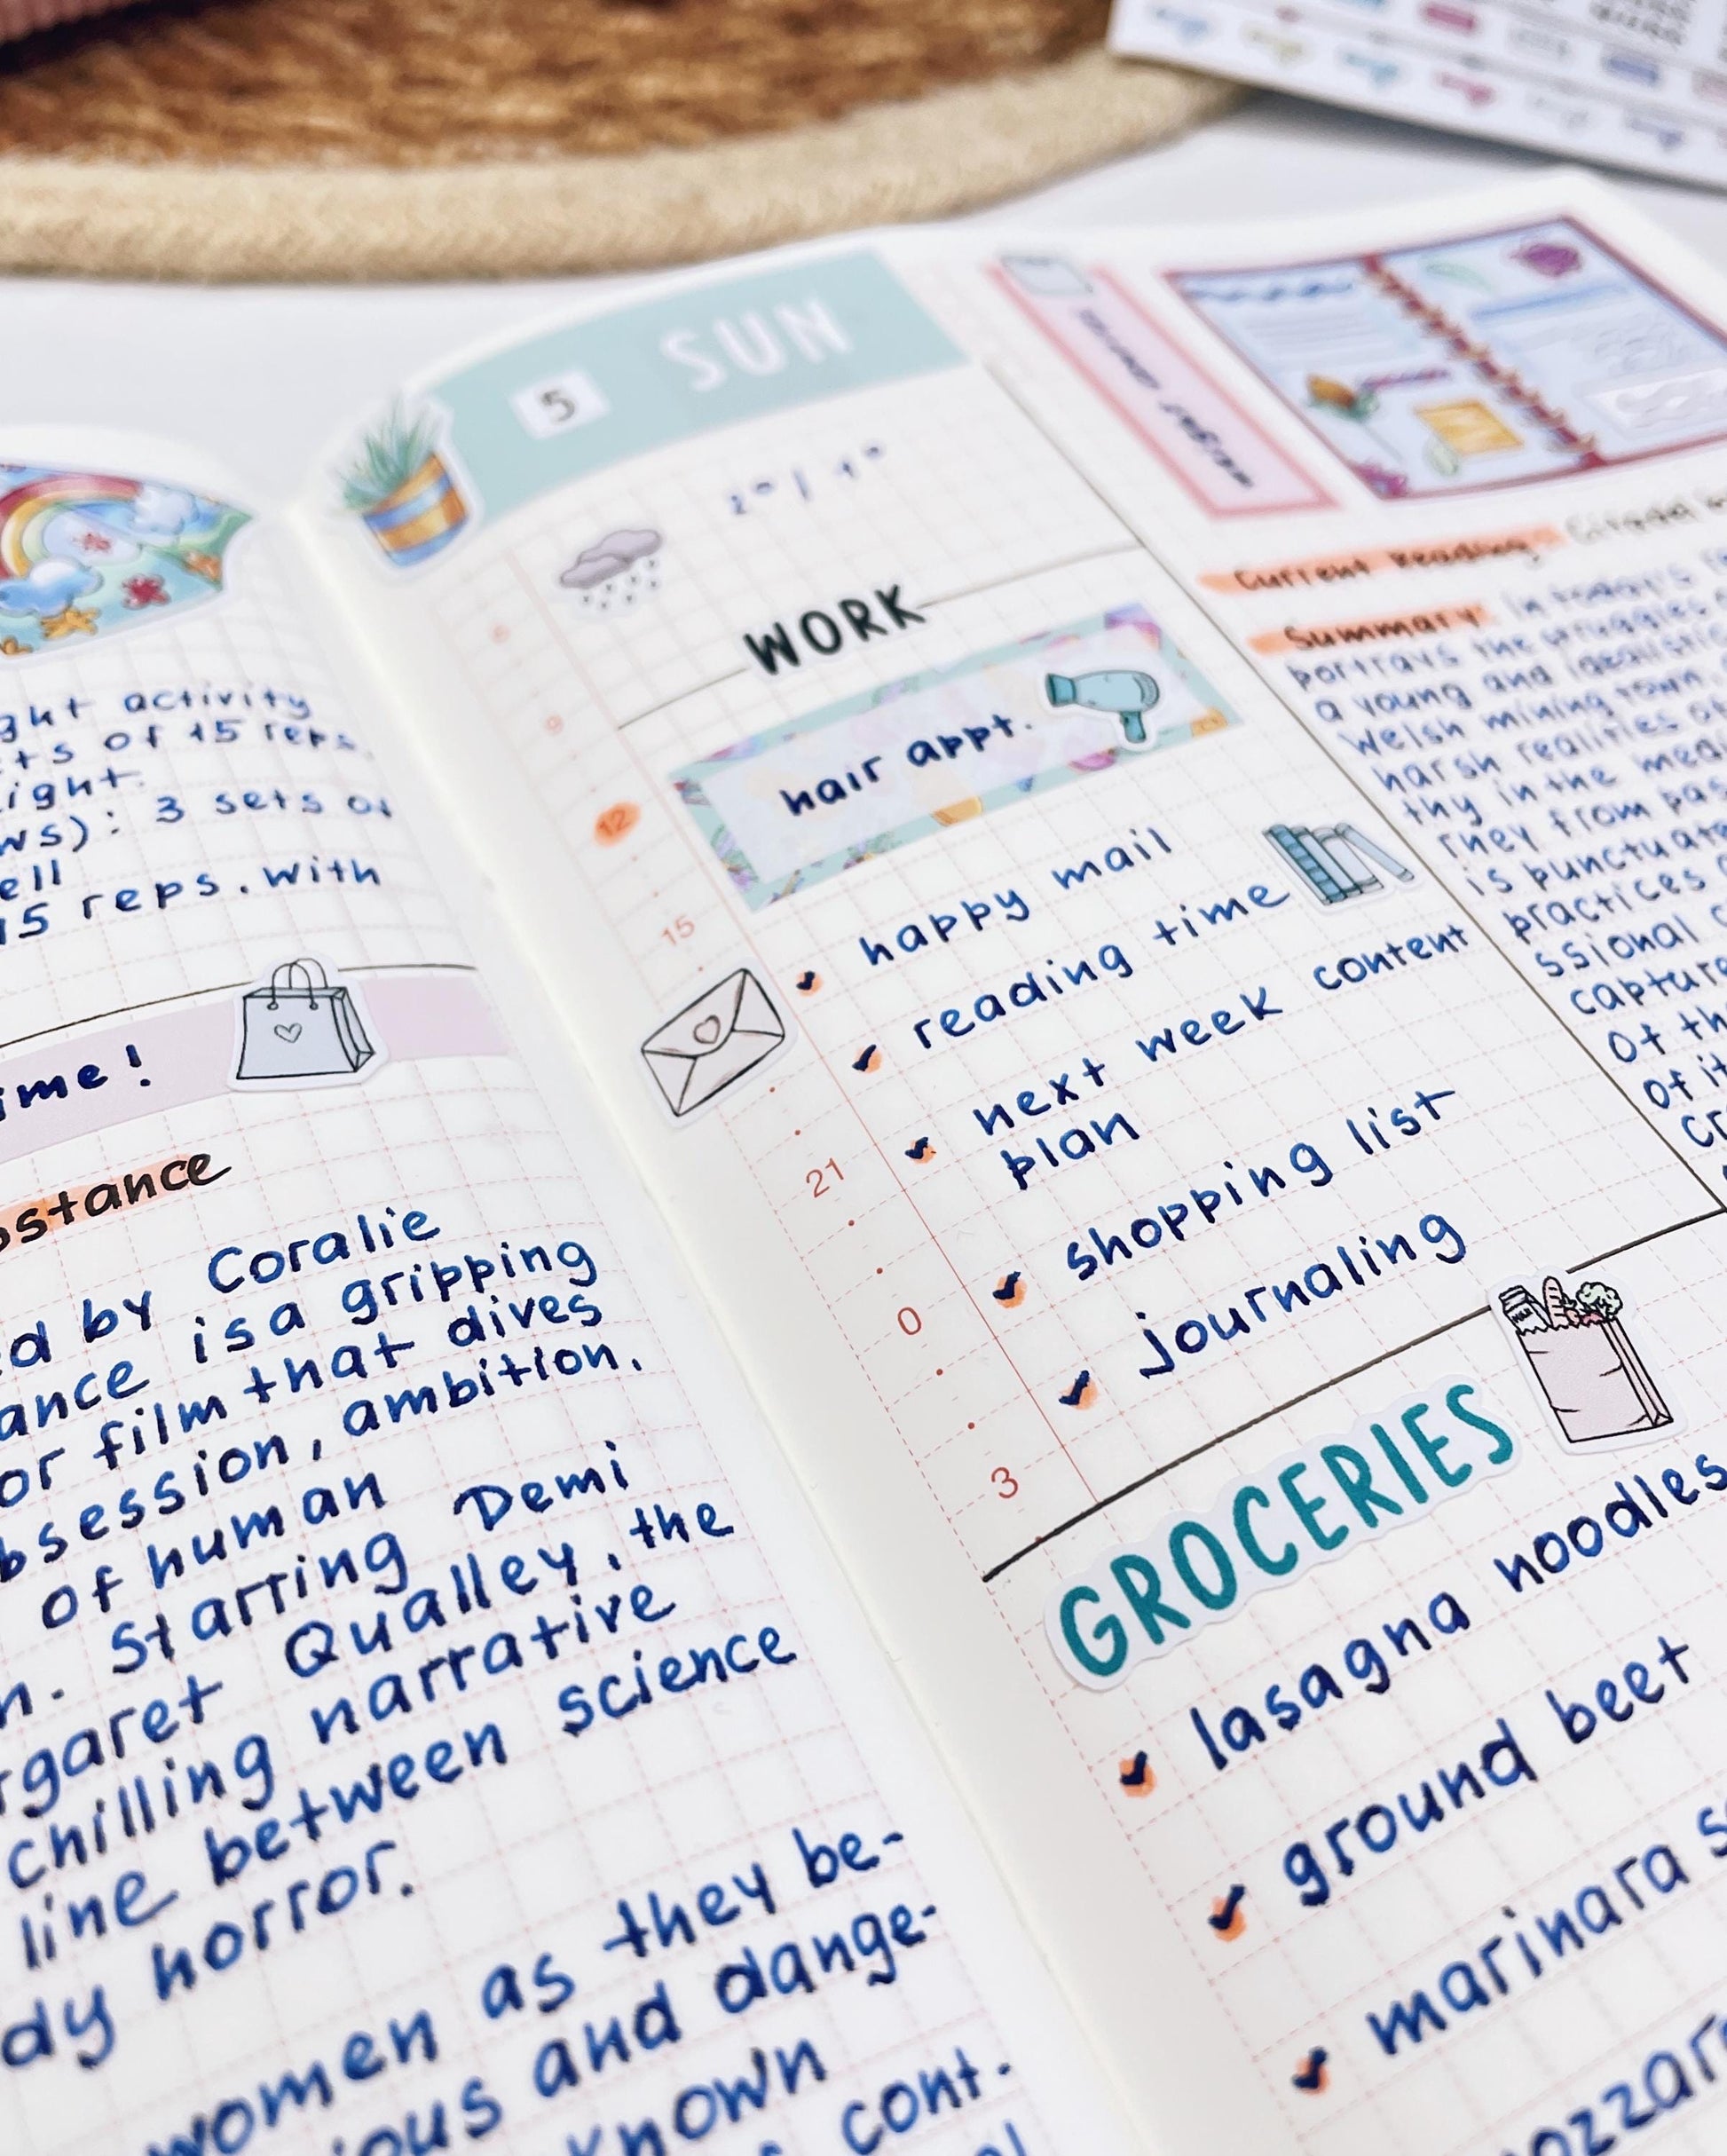 ght activity
ts of 15 reps.
ight.
ws): 3 sets of
ell
15 reps. With
ime!
bstance
ed by Coralie
ance is a gripping
or film that dives
bsession, ambition,
of human
n. Starring Demi
rgaret Qualley, the
chilling narrative
line between science
dy horror.
women as they be-
ious and dange-
known
cont.
5 SUN
WORK
hair appt.
happy mail
reading time
next week content
plan
shopping list
journaling
6
9
12
15
21
0
3
GROCERIES
lasagna noodles
ground beef
marinara s
ozzar
Current Reading: Citadel
Summary: In today's
portrays the struggles
a young and idealistic
Welsh mining town,
harsh realities of
thy in the medi
rney from pas
is punctuate
practices
ssional c
capture
of th
of it
cr